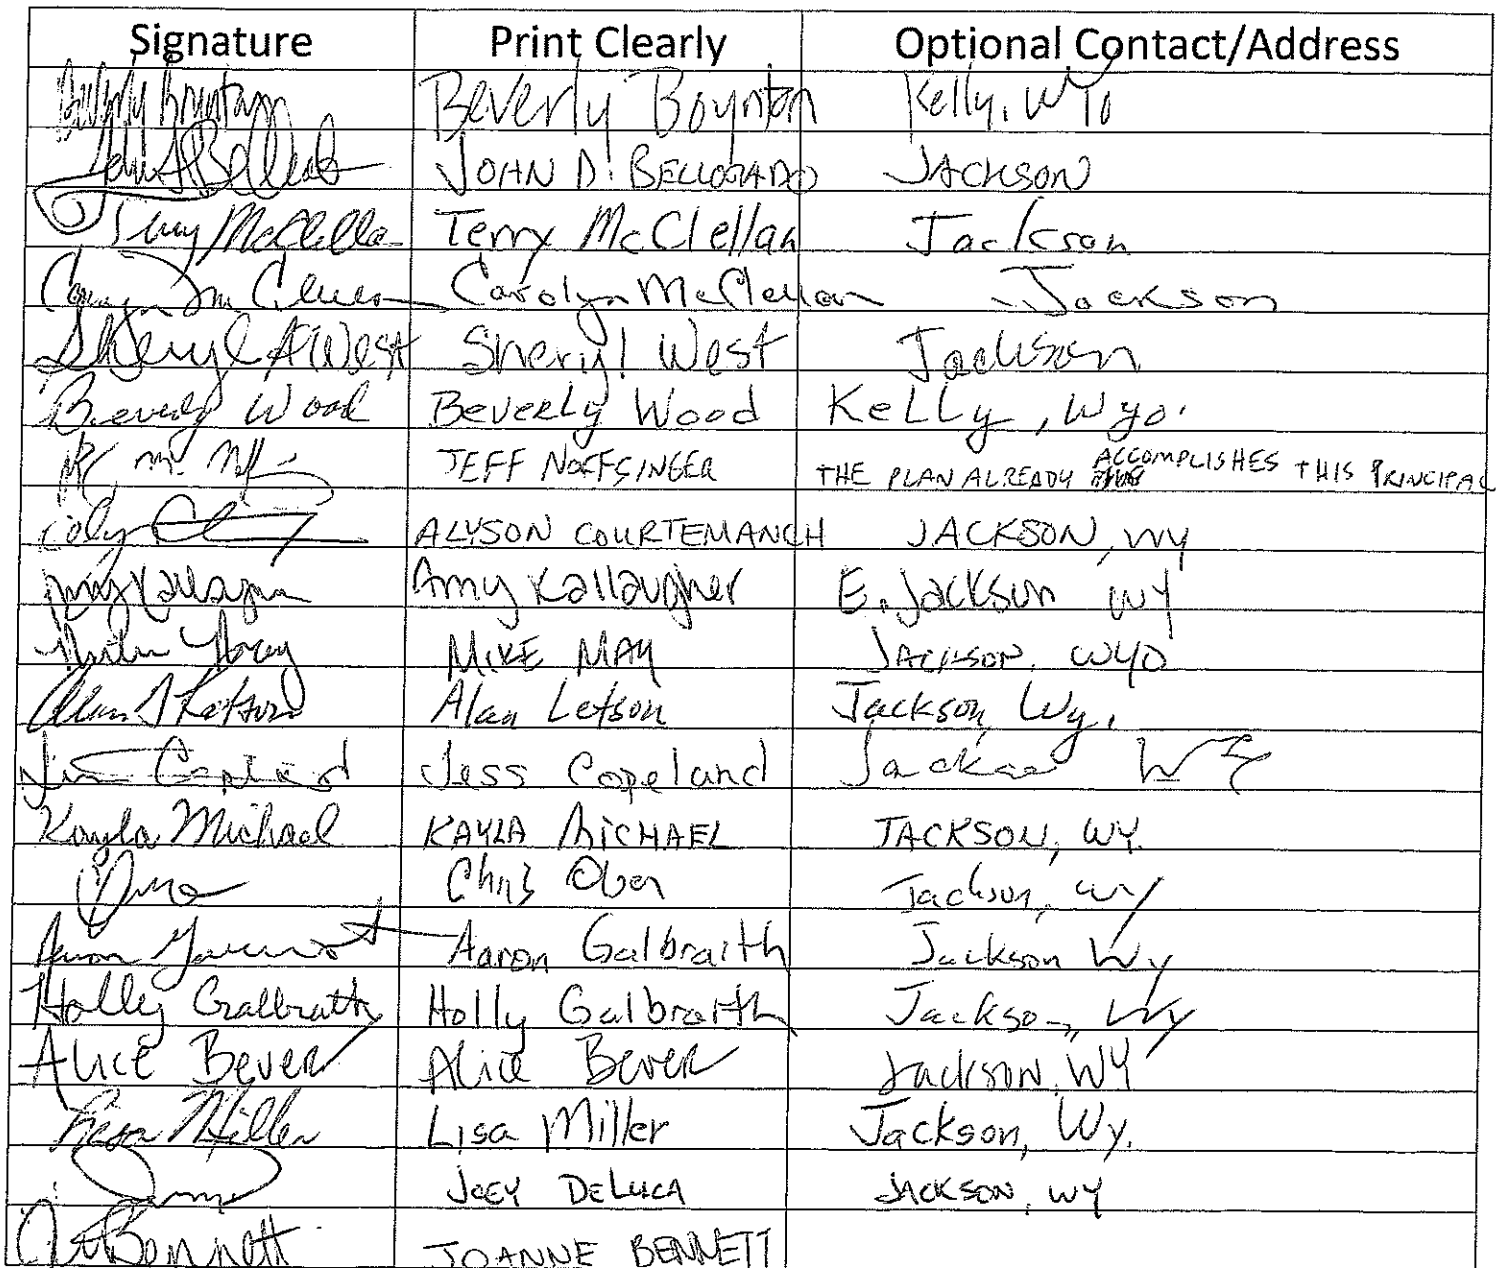 Signature Print Clearly Optional Contact/Address
Beverly Boynton Beverly Boynton Kelly, WYo
JOHN D. BELLORADO JACKSON
Terry McClella Terry McClellan Jackson
Carolyn McClellan Jackson
Sheryl A West Sheryl West Jackson
Beverly Wood Beverly Wood Kelly, Wyo.
JEFF NOFFSINGER THE PLAN ALREADY ACCOMPLISHES THIS PRINCIPAL
ALYSON COURTEMANCH JACKSON, WY
Amy Kallaugher E. Jackson WY
MIKE MAY JACKSON, WYO
Alan Letson Jackson, Wy.
Jess Copeland Jackson WY
Kayla Michael KAYLA MICHAEL JACKSON, WY.
Chris Jackson, WY
Aaron Galbraith Jackson Wy
Holly Galbraith Holly Galbraith Jackson, Wy
Alice Bever Alice Bever Jackson, WY
Lisa Miller Lisa Miller Jackson, Wy.
JOEY DELUCA JACKSON, WY
Bennett JOANNE BENNETT